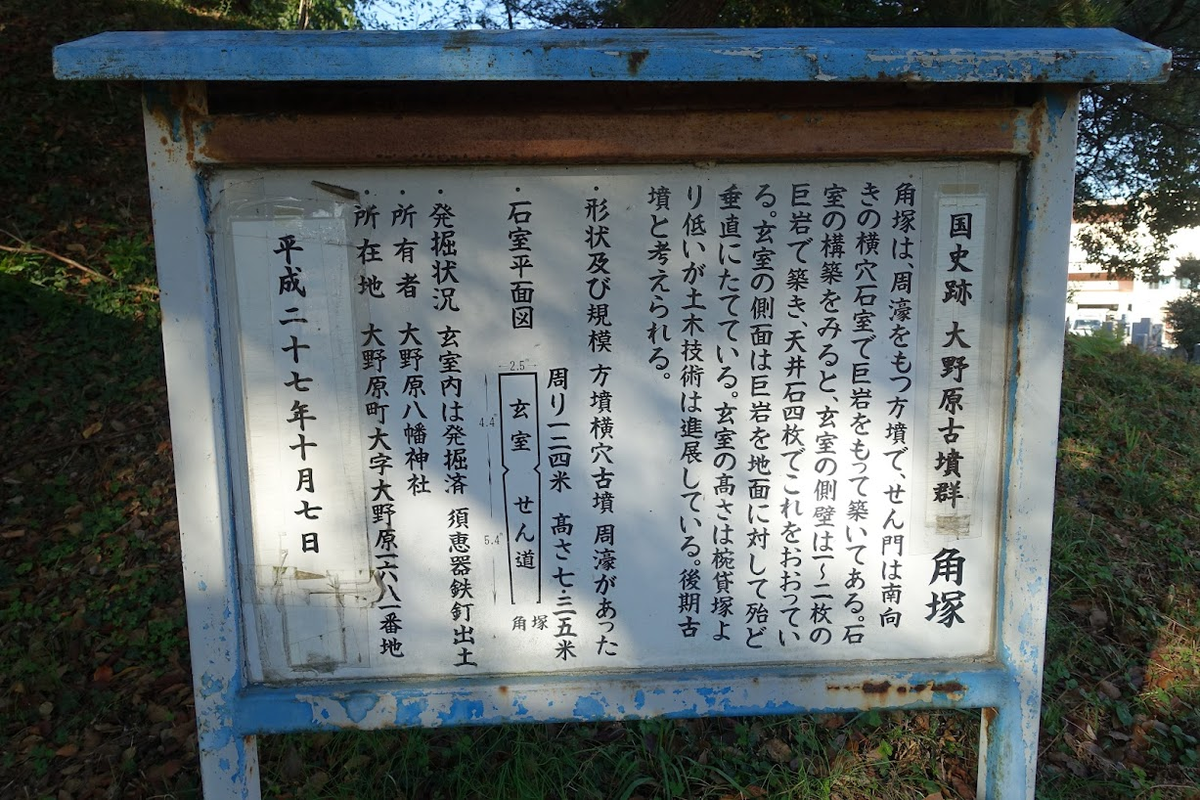 国史跡 大野原古墳群 角塚
角塚は、周濠をもつ方墳で、せん門は南向
きの横穴石室で巨岩をもって築いてある。石
室の構築をみると、玄室の側壁は一〜二枚の
巨岩で築き、天井石四枚でこれをおおってい
る。玄室の側面は巨岩を地面に対して殆ど
垂直にたてている。玄室の高さは椀貸塚よ
り低いが土木技術は進展している。後期古
墳と考えられる。
・形状及び規模 方墳横穴古墳 周濠があった
周り一二四米 高さ七・三五米
・石室平面図
2.5
4.4
5.4
玄室 せん道
角塚
・発掘状況 玄室内は発掘済 須恵器鉄釘出土
・所有者 大野原八幡神社
・所在地 大野原町大字大野原一六八一番地
平成二十七年十月七日